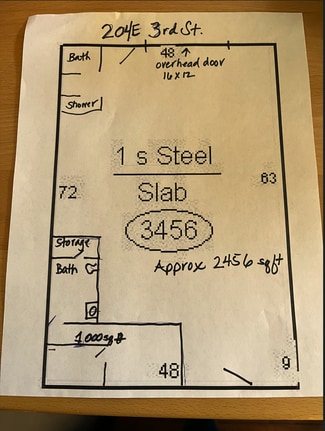 204E 3rd St.
Bath
48 ↑
overhead door
16x12
Shower
1 s Steel
Slab
72
63
3456
Storage
Bath
Approx 2456 sqft
1000 sqft
48
9